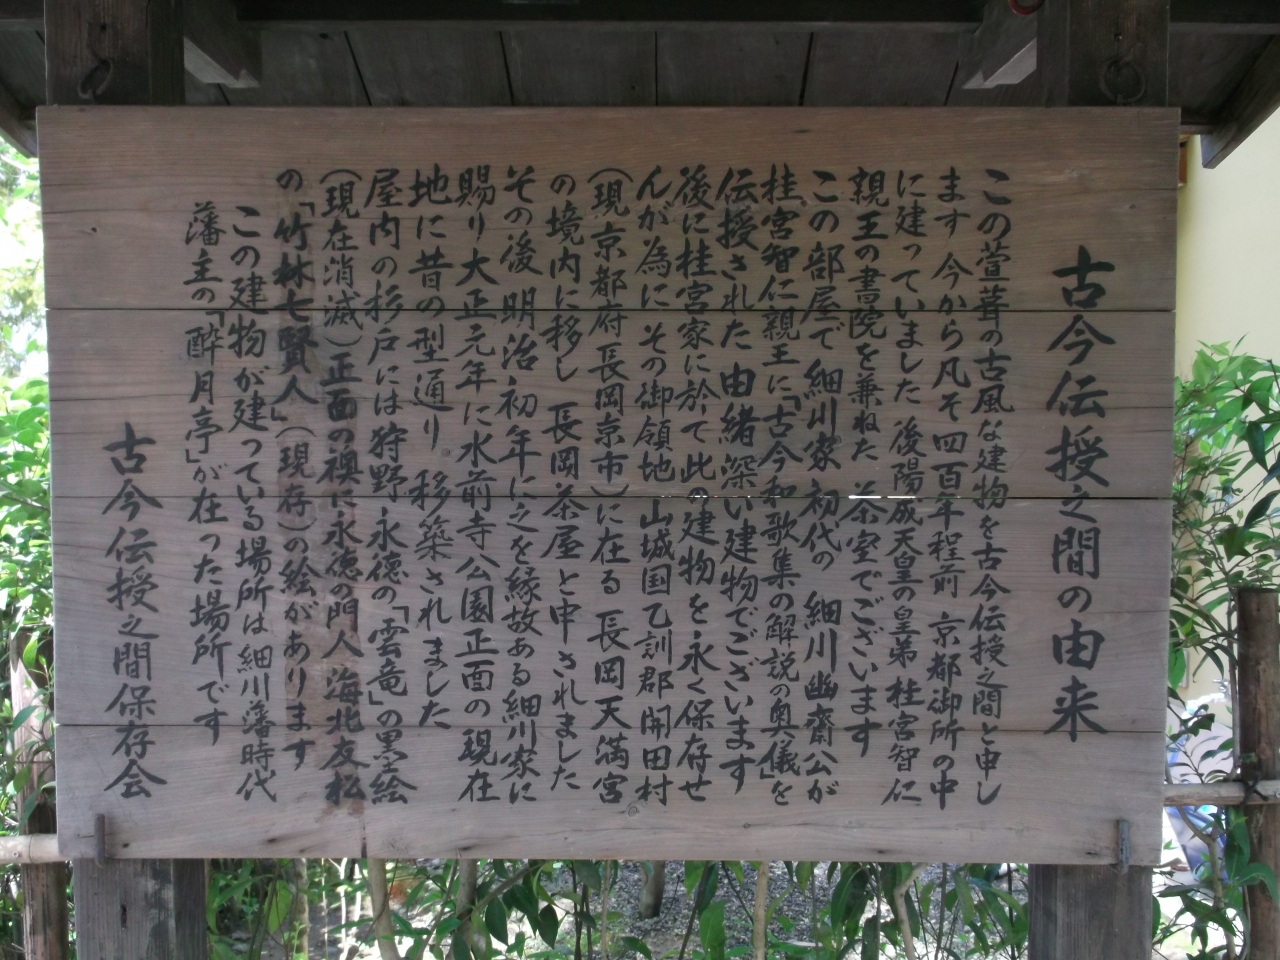 古今伝授之間の由来
この萱葺の古風な建物を古今伝授之間と申し
ます 今から凡そ四百年程前 京都御所の中
に建っていました 後陽成天皇の皇弟 桂宮智仁
親王の書院を兼ねた 茶室でございます
この部屋で 細川家 初代の 細川幽齋公が
桂宮智仁親王に「古今和歌集の解説の奥儀」を
伝授された 由緒深い建物でございます
後に桂宮家に於て此の建物を永く保存せ
んが為に その御領地 山城国乙訓郡開田村
(現京都府長岡京市)に在る 長岡天満宮
の境内に移し 長岡茶屋と申されました
その後 明治初年に之を縁故ある細川家に
賜り大正元年に水前寺公園正面の現在
地に昔の型通り 移築されました
屋内の杉戸には狩野永徳の「雲竜」の黒絵
(現在消滅)正面の襖に永徳の門人 海北友松
の「竹林七賢人」(現存)の絵があります
この建物が建っている場所は細川藩時代
藩主の「酔月亭」が在った場所です
古今伝授之間保存会